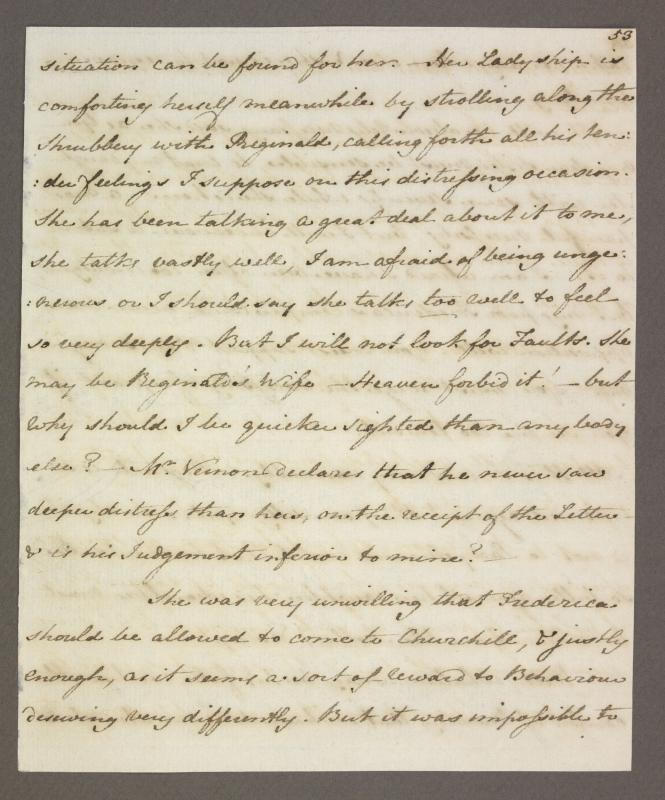 53
situation can be found for her. — Her Ladyship is
comforting herself meanwhile by strolling along the
Shrubbery with Reginald, calling forth all his ten:
:der feelings I suppose on this distressing occasion.
She has been talking a great deal about it to me,
she talks vastly well, I am afraid of being unge:
:nerous or I should say she talks too well to feel
so very deeply. But I will not look for Faults. She
may be Reginald's Wife — Heaven forbid it! — but
why should I be quicker sighted than any body
else? — Mr. Vernon declares that he never saw
deeper distress than hers, on the receipt of the Letter —
& is his Judgement inferior to mine? —
She was very unwilling that Frederica
should be allowed to come to Churchill, & justly
enough, as it seems a sort of reward to Behaviour
deserving very differently. But it was impossible to